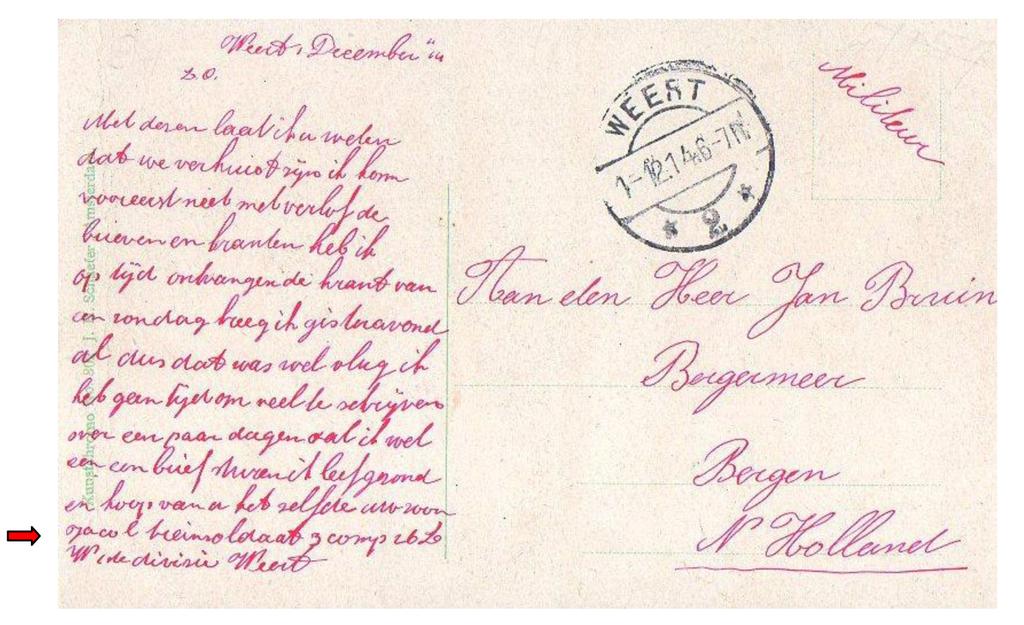 Weert 1 December
L.O.
Met dezen laat ik u weten
dat we verhuist zijn ik kom
vooreerst niet met verlof de
brieven en kranten heb ik
op tijd ontvangen de krant van
en zondag kreeg ik gisteravond
al dus dat was wel vlug ik
heb geen tijd om veel te schrijven
over een paar dagen zal ik wel
een brief sturen ik leef gezond
en hoop van u het zelfde uw zoon
soldaat 3 comp
divisie Weert
Kunstchromo J. Schaefer Amsterda
WEERT
1-12.14.6-7N
* 2 *
Militeur
Aan den Heer Jan Bruin
Bergermeer
Bergen
N Holland